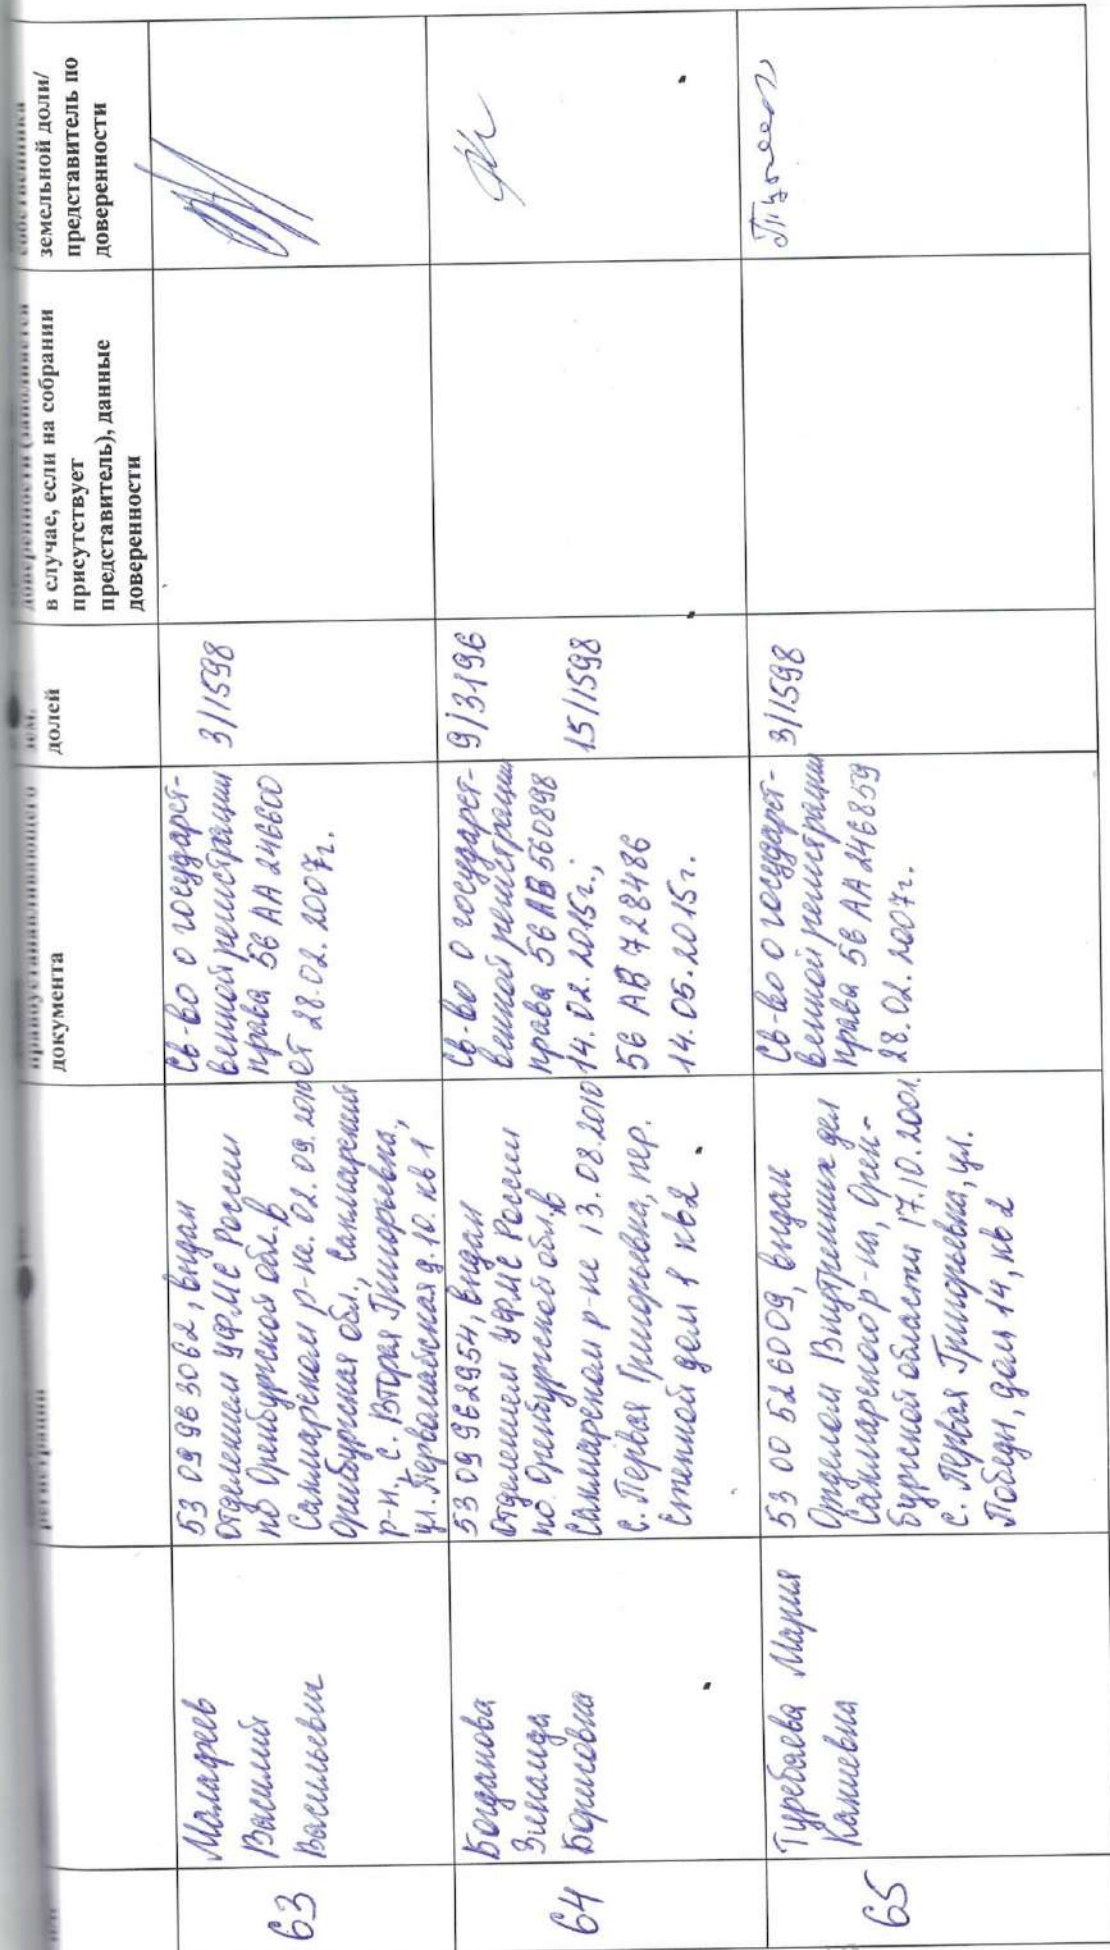 документа
долей
в случае, если на собрании
присутствует
представитель), данные
доверенности
земельной доли/
представитель по
доверенности
63
Малафеев
Василий
Васильевич
53 09 963062, выдан
отделением УФМС России
по Оренбургской обл. в
Сакмарском р-не. 02.09.2010
Оренбургская обл., Сакмарский
р-н, с. Вторая Григорьевка,
ул. Первомайская д. 10. кв 1
Св-во о государст-
венной регистрации
права 56 АА 246600
от 28.02.2007г.
3/1598
64
Богданова
Зинаида
Борисовна
53 09 962954, выдан
отделением УФМС России
по Оренбургской обл. в
Сакмарском р-не 13.08.2010
с. Первая Григорьевка, пер.
Степной дом 1 кв 2
Св-во о государст-
венной регистрации
права 56 АВ 560898
14.02.2015г.;
56 АВ 728486
14.05.2015г.
9/3196
15/1598
65
Туребаева Мария
Каниевна
53 00 526009, выдан
Отделом Внутренних дел
Сакмарского р-на, Орен-
бургской области 17.10.2001.
с. Первая Григорьевка, ул.
Победы, дом 14, кв 2
Св-во о государст-
венной регистрации
права 56 АА 246859
28.02.2007г.
3/1598